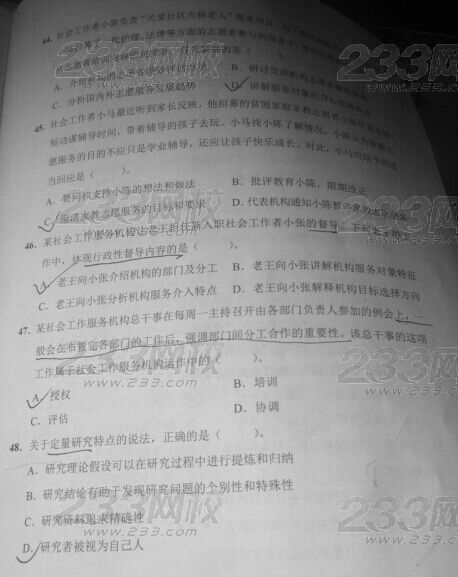 44. 社会工作者小陈负责“关爱社区失独老人”服务项目。为了
与招募了一批护理、法律等方面的志愿者参与到服务中
C. 分析国内外志愿服务发展趋势
D. 讲解服务对象的身心发展特点
45. 社会工作者小马最近听到家长反映，他招募的贫困家庭家教志愿者小陈经常
短功课辅导时间，带着辅导的孩子去玩。小马找小陈了解情况，小陈认为家教志
愿服务的目的不应只是学业辅导，还应让孩子快乐成长。对此，小马应给予的适
当回应是（ ）。
A. 赞同和支持小陈的想法和做法
B. 批评教育小陈，限期改正
C. 澄清家教志愿服务的目标和要求
D. 代表机构通知小陈
46. 某社会工作服务机构让老王担任新入职社会工作者小张的督导，下列老王的工
作中，体现行政性督导内容的是（ ）。
A. 老王向小张介绍机构的部门及分工
B. 老王向小张讲解机构服务对象特征
C. 老王向小张分析机构服务介入特点
D. 老王向小张解释机构目标选择方向
47. 某社会工作服务机构总干事在每周一主持召开由各部门负责人参加的例会上，一
般会在布置完各部门的工作后，强调部门间分工合作的重要性。该总干事的这项
工作属于社会工作服务机构运作中的（ ）。
A. 授权
B. 培训
C. 评估
D. 协调
48. 关于定量研究特点的说法，正确的是（ ）。
A. 研究理论假设可以在研究过程中进行提炼和归纳
B. 研究结论有助于发现研究问题的个别性和特殊性
C. 研究资料追求精确性
D. 研究者被视为自己人
233网校
www.233.com